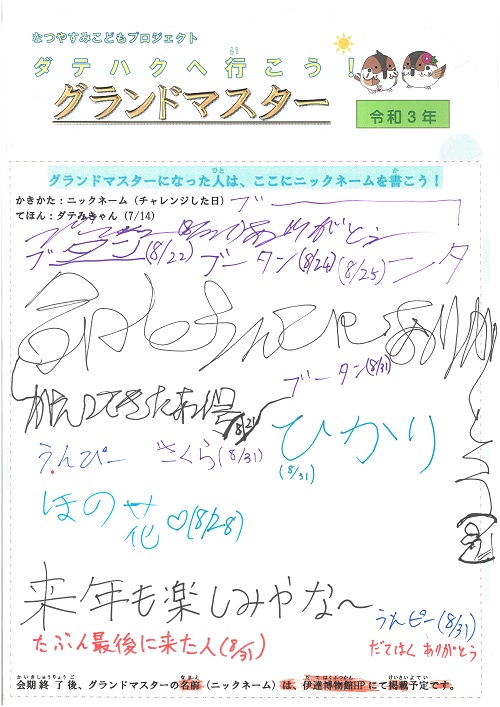 なつやすみこどもプロジェクト
ダテハクへ行こう！
グランドマスター
令和３年
グランドマスターになった人は、ここにニックネームを書こう！
かきかた：ニックネーム（チャレンジした日）
てほん：ダテみきゃん（7/14）
ブー
ありがとう
ブータン(8/22) ブータン(8/24)(8/25) ンタ
ブータン(8/31)
8/21
うんぴー さくら(8/31)
ひかり
(8/31)
ほの花♡(8/28)
来年も楽しみやな〜
うんピー(8/31)
たぶん最後に来た人(8/31)
だてはく ありがとう
会期終了後、グランドマスターの名前（ニックネーム）は、伊達博物館HPにて掲載予定です。